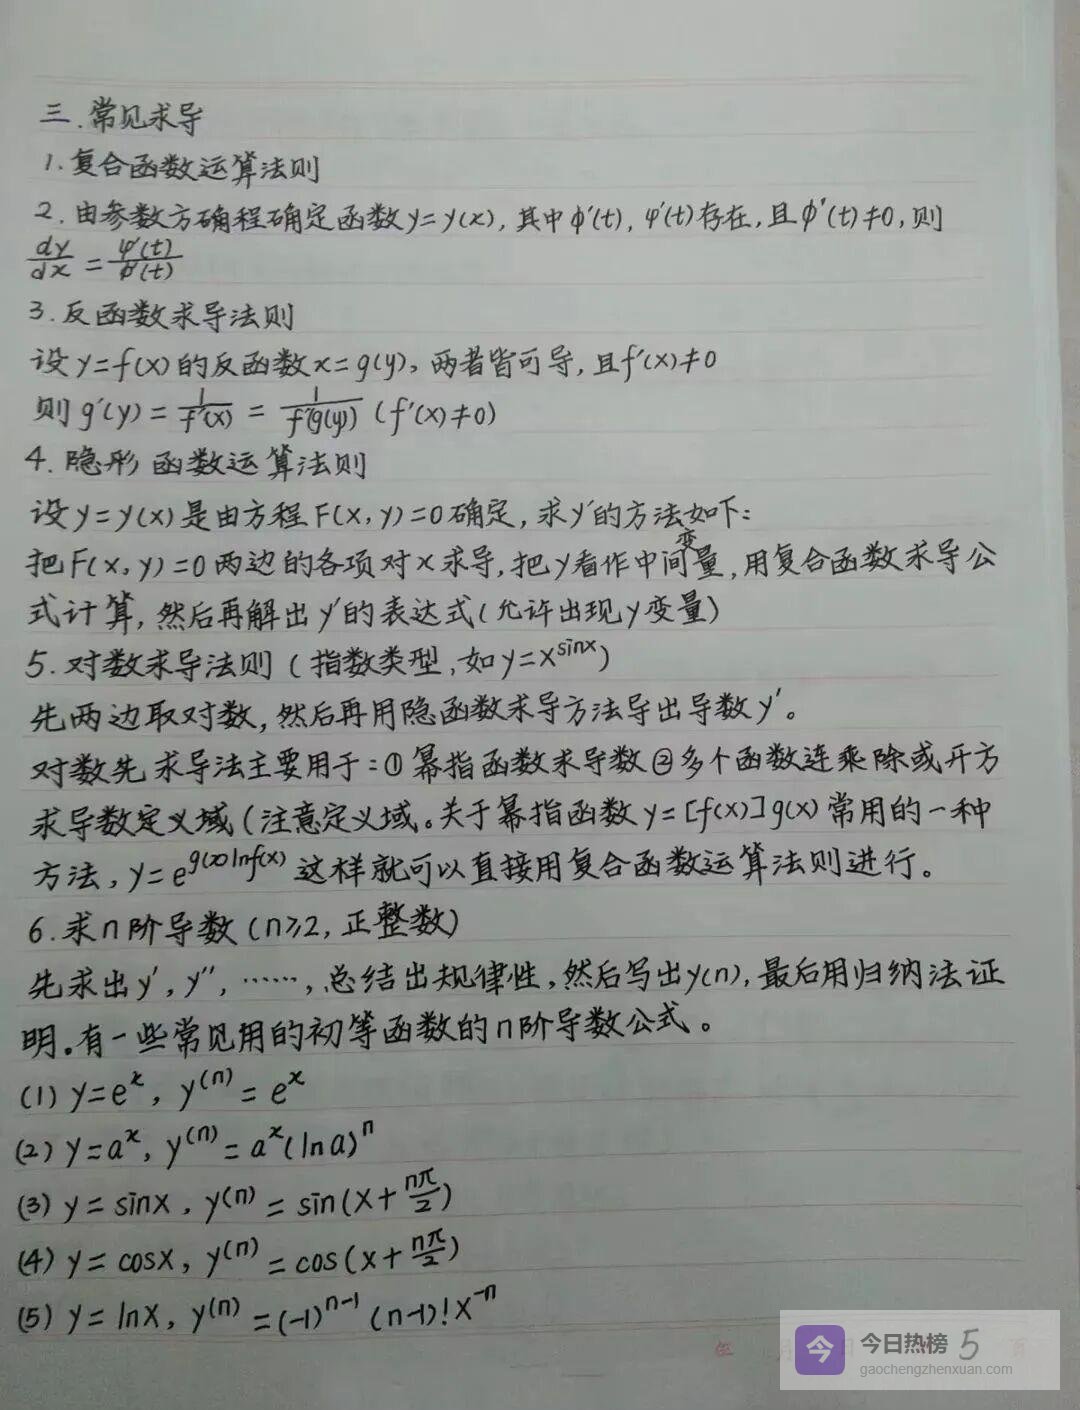 三.常见求导
1.复合函数运算法则
2.由参数方确程确定函数y=y(x),其中φ'(t),ψ'(t)存在,且φ'(t)≠0,则
dy/dx=ψ'(t)/φ'(t)
3.反函数求导法则
设y=f(x)的反函数x=g(y),两者皆可导,且f'(x)≠0
则g'(y)=1/f'(x)=1/f'(g(y))(f'(x)≠0)
4.隐形函数运算法则
设y=y(x)是由方程F(x,y)=0确定,求y'的方法如下:
把F(x,y)=0两边的各项对x求导,把y看作中间变量,用复合函数求导公
式计算,然后再解出y'的表达式(允许出现y变量)
5.对数求导法则(指数类型,如y=x^sinx)
先两边取对数,然后再用隐函数求导方法导出导数y'。
对数先求导法主要用于:①幂指函数求导数②多个函数连乘除或开方
求导数定义域(注意定义域。关于幂指函数y=[f(x)]g(x)常用的一种
方法,y=e^g(x)lnf(x)这样就可以直接用复合函数运算法则进行。
6.求n阶导数(n≥2,正整数)
先求出y',y'',……,总结出规律性,然后写出y(n),最后用归纳法证
明。有一些常见用的初等函数的n阶导数公式。
(1)y=e^x,y^(n)=e^x
(2)y=a^x,y^(n)=a^x(lna)^n
(3)y=sinx,y^(n)=sin(x+nπ/2)
(4)y=cosx,y^(n)=cos(x+nπ/2)
(5)y=lnx,y^(n)=(-1)^n-1(n-1)!x^-n
今 今日热榜 5
gaochengzhenxuan.com